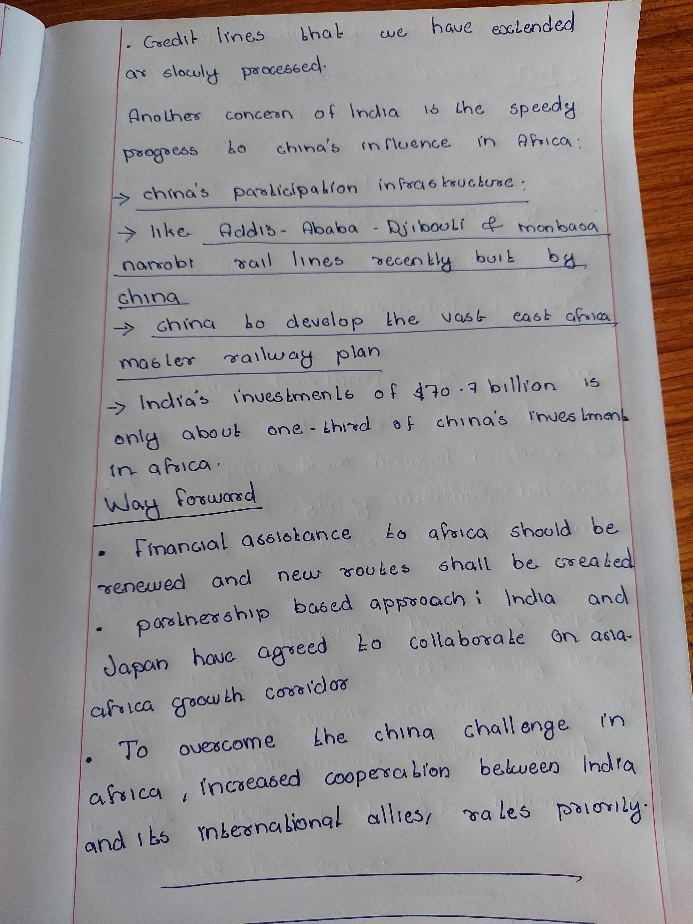 . Credit lines that we have exxtended
ar slowly processed.
Another concern of India is the speedy
progress to china's influence in Africa:
→ china's participation infrastructure:
→ like Addis-Ababa-Djibouti & monbasa
narrobi rail lines recently built by
china
→ china to develop the vast east africa
master railway plan
→ India's investments of $70.7 billion is
only about one-third of china's investment
in africa.
Way forward
• Financial assistance to africa should be
renewed and new routes shall be created
• partnership based approach: India and
Japan have agreed to collaborate on asia-
africa growth corridor
• To overcome the china challenge in
africa, increased cooperation between India
and its international allies, rates priority.